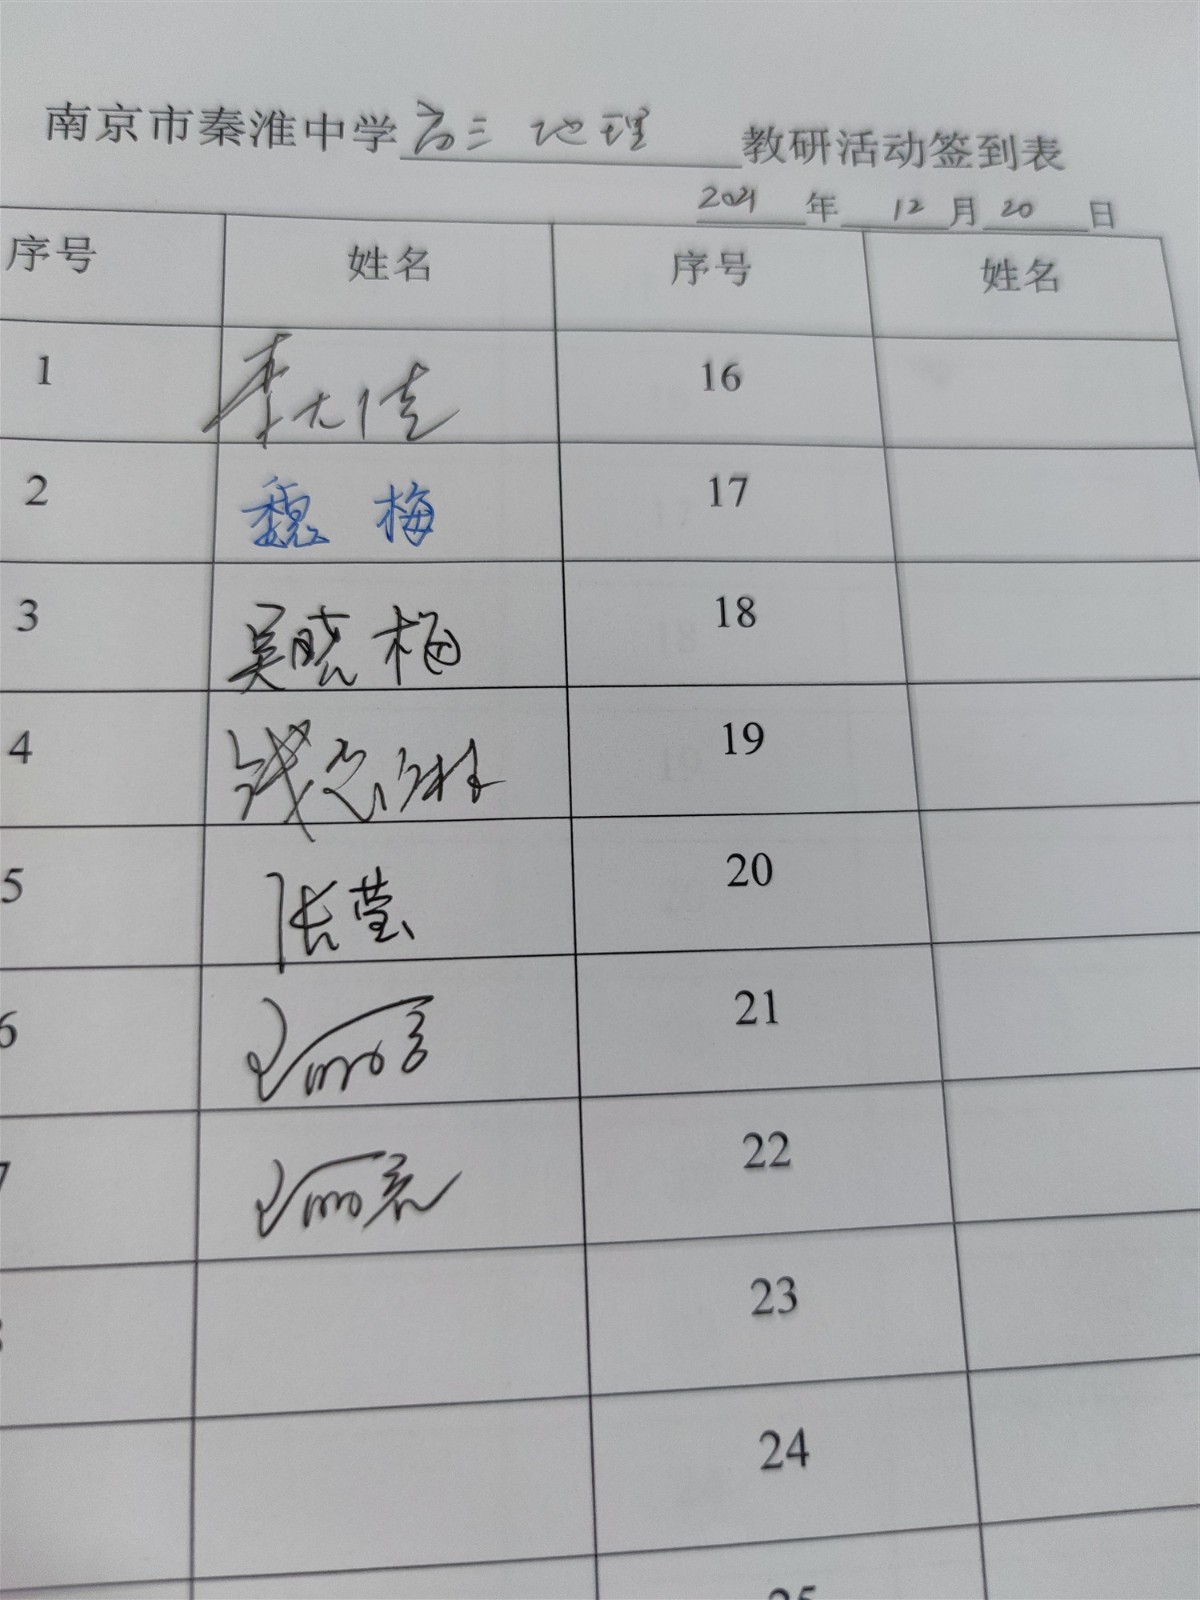 南京市秦淮中学高三 地理 教研活动签到表
2021 年 12 月 20 日
序号 姓名 序号 姓名
1 李大 16
2 魏 梅 17
3 吴晓梅 18
4 钱 19
5 张莹 20
6 21
7 22
23
24
25